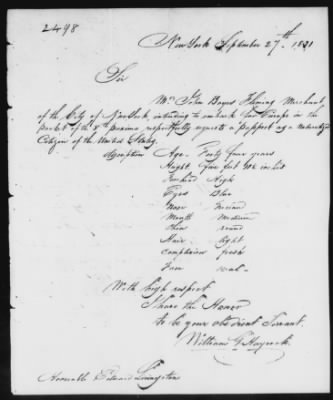 2498
New York September 27th. 1831
Sir
Mr. John Bayes Fleming Merchant
of the City of New York, intending to embark for Europe in the
Packet of the 8th proximo respectfully requests a Passport as a naturalized
Citizen of the United States,
description Age - Forty four years
Height Five feet inches
Forehead High
Eyes Blue
Nose
Mouth Medium
Chin round
Hair light
Complexion fresh
Face oval -
With high respect
I have the Honor
to be your obedient Servant.
William
Honorable Edward Livingston